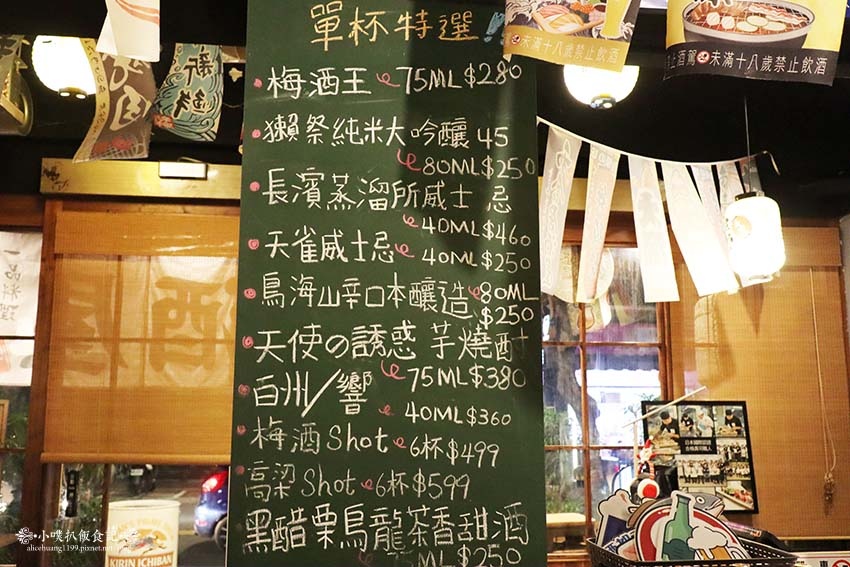 單杯特選!!
梅酒王 75ML $280
獺祭純米大吟釀 45
80ML $250
長濱蒸溜所威士忌
40ML $460
天雀威士忌 40ML $250
鳥海山辛口本釀造 80ML
$250
天使の誘惑 芋燒酎
75ML $380
百州/響
40ML $360
梅酒Shot 6杯 $499
高梁Shot 6杯 $599
黑醋栗烏龍茶香甜酒
75ML $250
未滿十八歲禁止飲酒
未滿十八歲禁止飲酒
KIRIN
新鮮
一品料理
酒
KIRIN ICHIBAN
小噗扒飯食記
alicehuang1199.pixnet.net